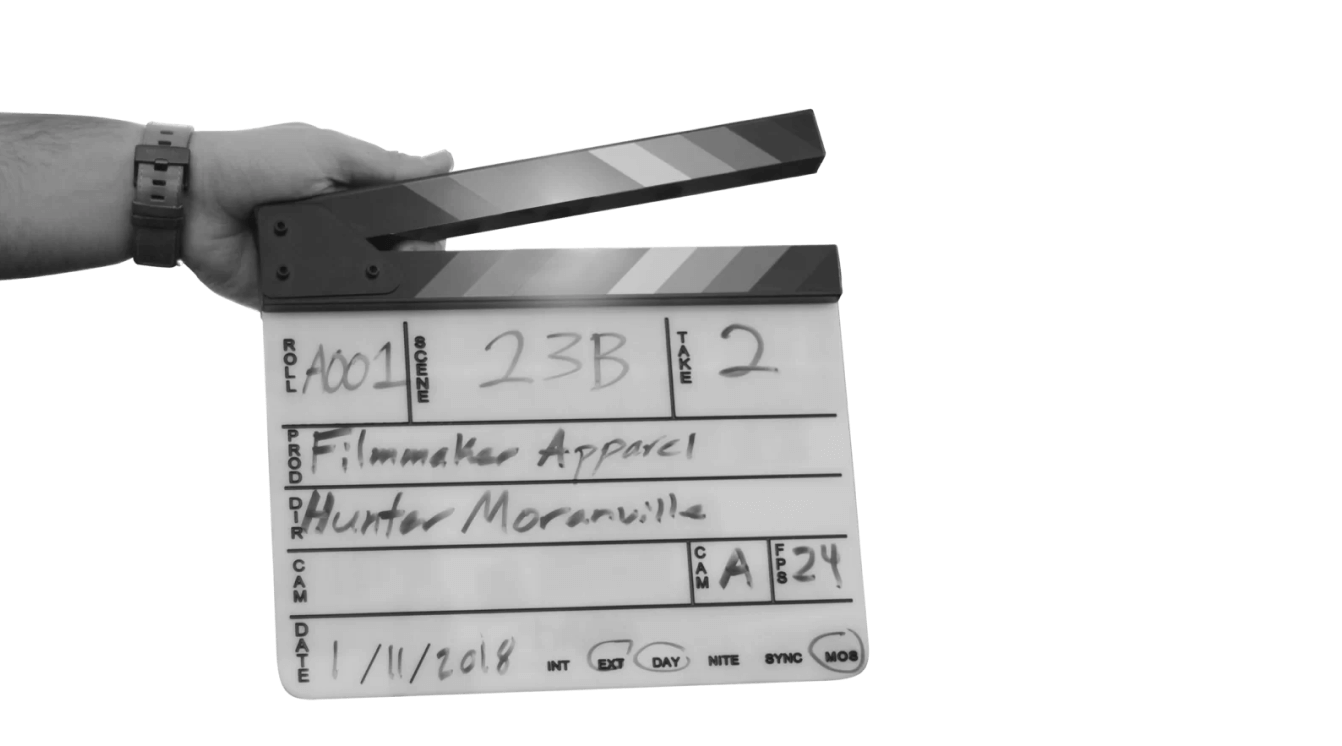 ROLL A001 SCENE 23B TAKE 2
PROD Filmmaker Apparel
DIR Hunter Moranville
CAM CAM A FPS 24
DATE 1/11/2018 INT EXT DAY NITE SYNC MOS